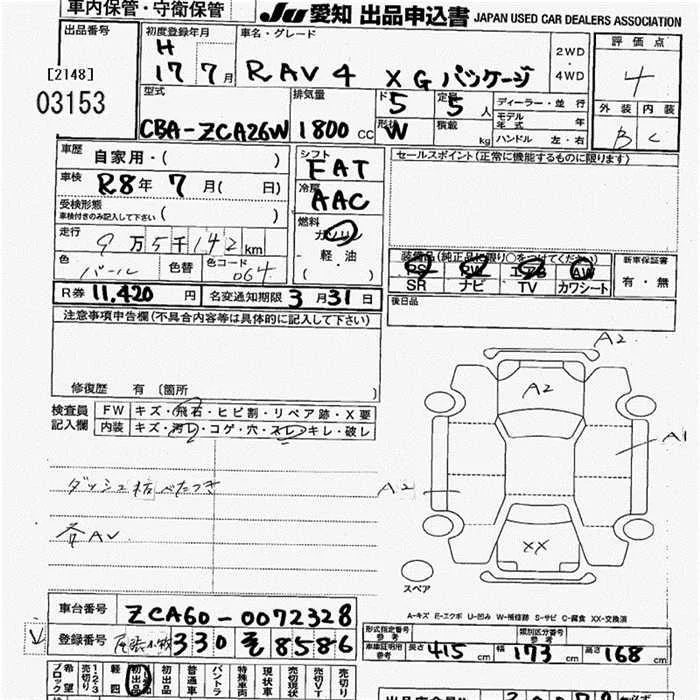 車内保管・守衛保管
JU 愛知 出品申込書 JAPAN USED CAR DEALERS ASSOCIATION
出品番号
[2148]
03153
初度登録年月
H
17年 7月
車名・グレード
RAV4 XGパッケージ
2WD
・
4WD
評価点
4
外装 内装
B C
型式
CBA-ZCA26W
排気量
1800 CC
ド 5
形状 W
定員 5 人
積載 kg
ディーラー・並行
モデル年式 年
ハンドル 左・右
車歴 自家用・( )
車検 R8年 7月( 日)
受検形態
車検付きのみ記入して下さい ( )
走行 9万5千142km
色 パール 色替 色コード 064
シフト
FAT
冷房
AAC
燃料
ガソリン
・
軽・油
( )
セールスポイント(正常に機能するものに限ります)
装備品(純正品に限り○をつけてください)
PS PW エアB AW
SR ナビ TV カワシート
新車保証書
有・無
後日品
R券 11,420 円 名変通知期限 3月31日
注意事項申告欄(不具合内容等は具体的に記入して下さい)
修復歴 有 〔箇所 〕
検査員
記入欄
FW キズ・飛石・ヒビ割・リペア跡・X要
内装 キズ・汚レ・コゲ・穴・スレ・キレ・破レ
ダッシュ板べたつき
A2
A2
A1
A2
XX
スペア
A-キズ E-エクボ U-凹み W-補修跡 S-サビ C-腐食 XX-交換済
車台番号 ZCA60-0072328
登録番号 尾張小牧 330 8586
形式指定番号
参考
類別区分番号
参考
車庫証明用
参考
長さ 415 cm 幅 173 cm 高さ 168 cm
ブロック
希望
売切り
1・2・3
軽四
初出品
初出品
普通車
バントラ
特殊車両
現状車
売切現状
売切VT
売切り